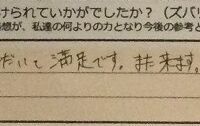 けられていかがでしたか？（ズバリ
想が、私達の何よりの力となり今後の参考と
だいて満足です。また来ます。